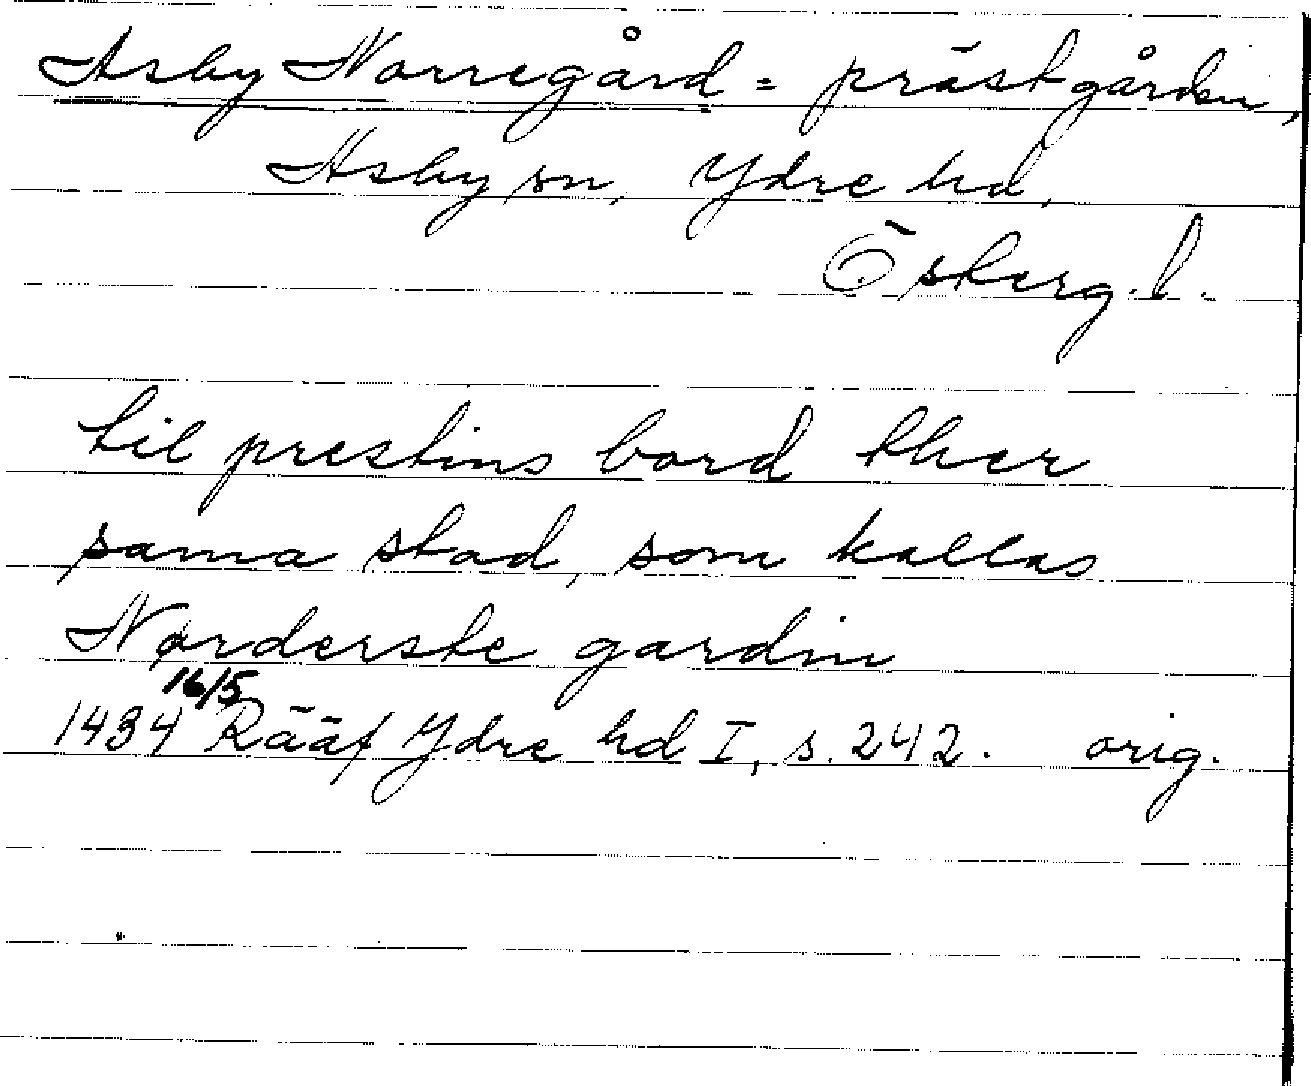 Asby Norregård = prästgården,
Asby sn, Ydre hd,
Österg. l.
til prestins bord ther
sama stad, som kallas
Nørderste gardin
1434 16/5 Rääf Ydre hd I, s. 242. orig.